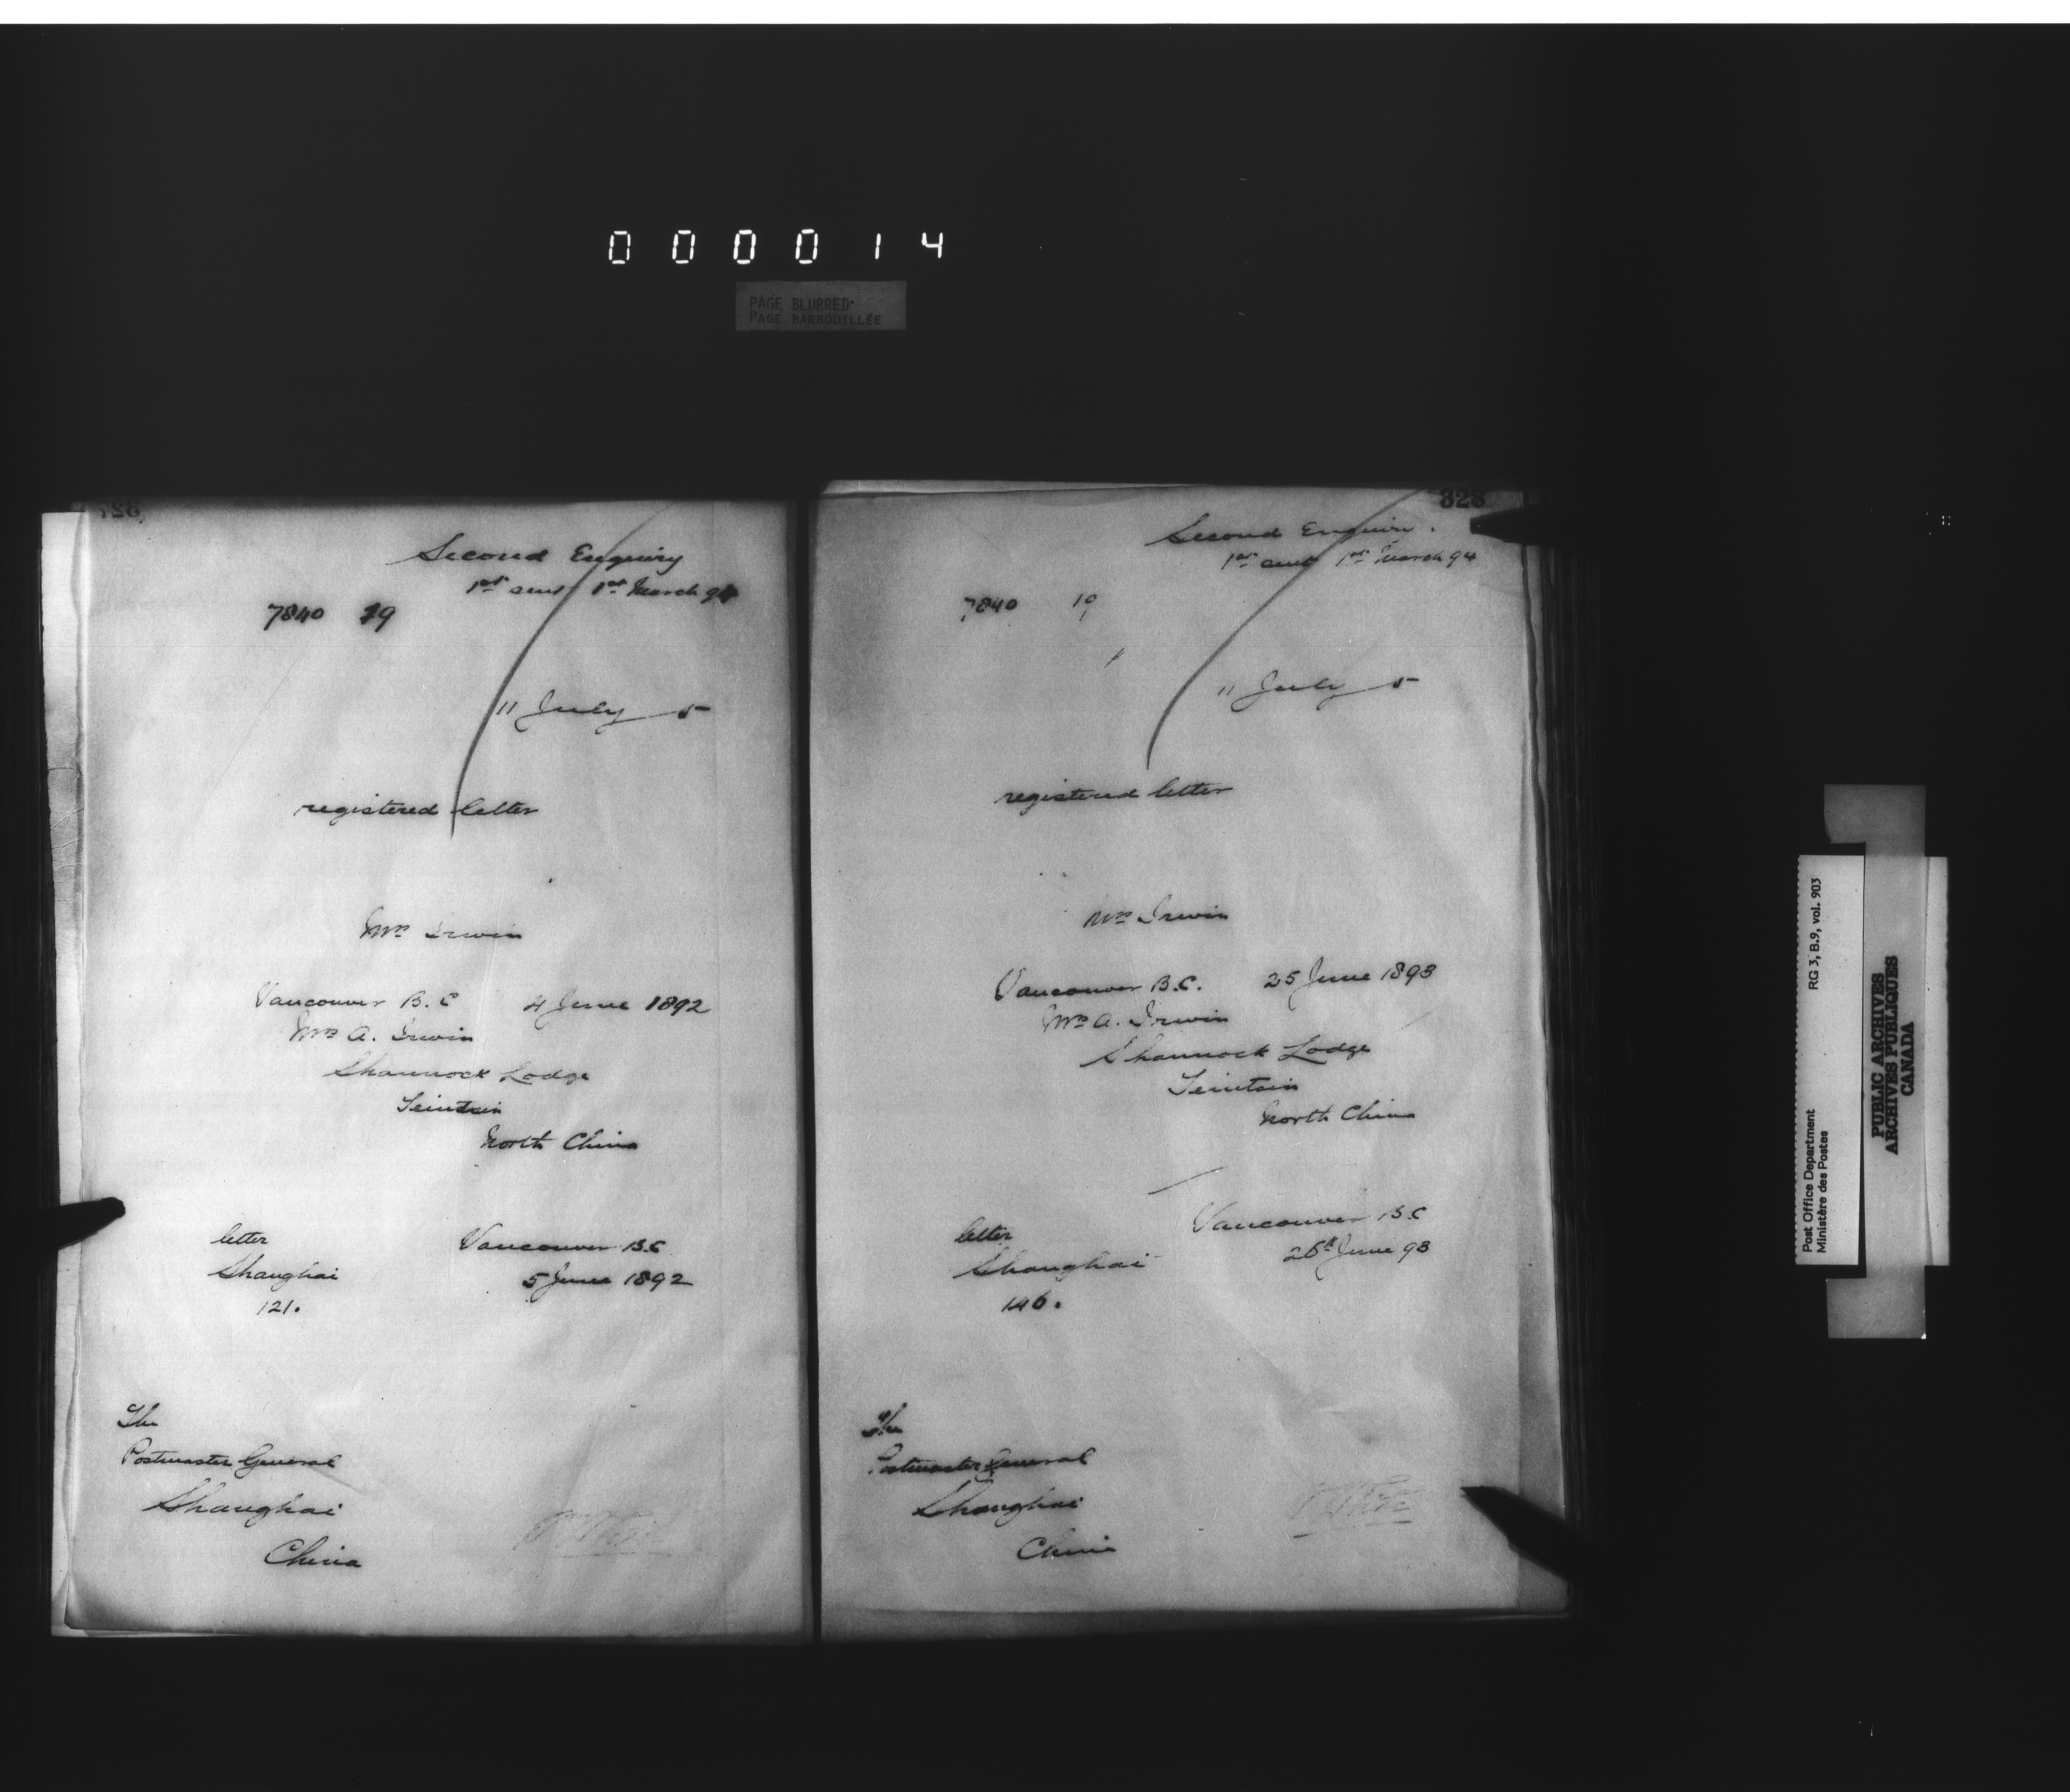 000014
PAGE BLURRED
PAGE BARBOUILLÉE
327
Second Enquiry
1st sent 1st March 94
7840 19
11 July 5
registered letter
Mrs Irwin
Vancouver B.C 4 June 1892
Mrs A. Irwin
Shamrock Lodge
Teintsin
North China
letter
Shanghai
121.
Vancouver B.C
5 June 1892
The
Postmaster General
Shanghai
China
328
Second Enquiry.
1st sent 1st March 94
7840 19
11 July 5
registered letter
Mrs Irwin
Vancouver B.C. 25 June 1893
Mrs A. Irwin
Shamrock Lodge
Teintsin
North China
letter
Shanghai
146.
Vancouver B.C
26th June 93
The
Postmaster General
Shanghai
China
Post Office Department RG 3, B.9, vol. 903
Ministère des Postes
PUBLIC ARCHIVES
ARCHIVES PUBLIQUES
CANADA